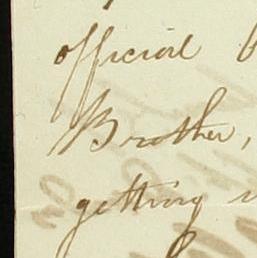 official
Brother,
getting